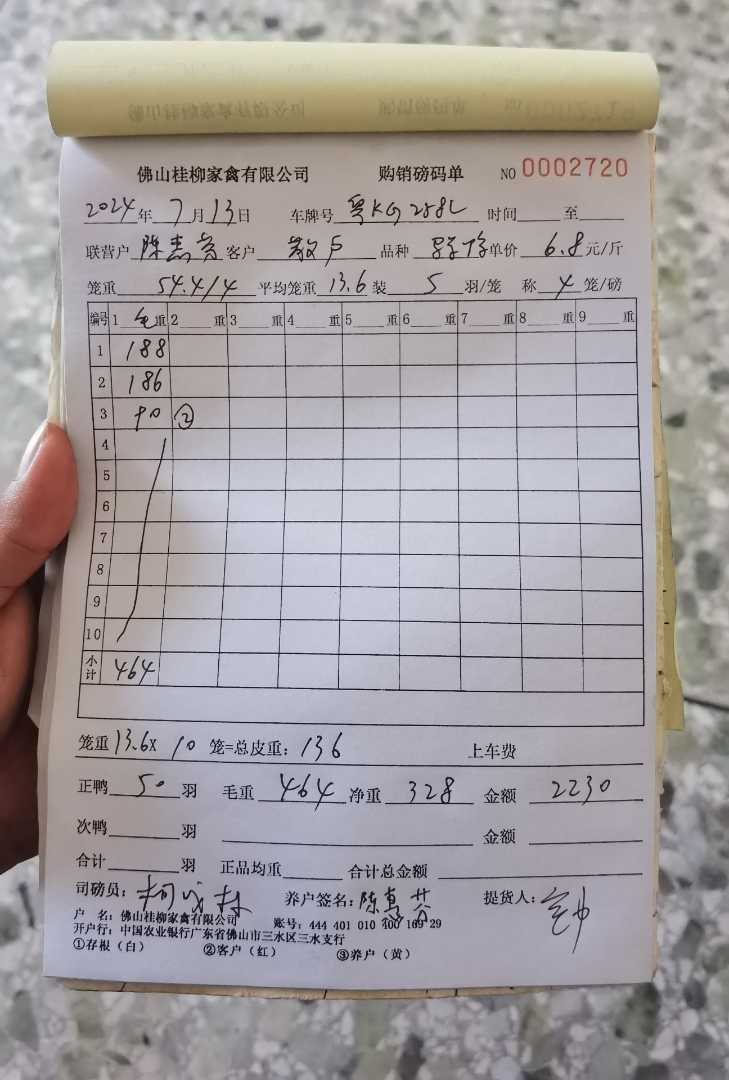 佛山桂柳家禽有限公司 购销磅码单 NO 0002720
2024年 7月13日 车牌号 粤KG258L 时间 至
联营户 陈惠 客户 散户 品种 单价 6.8 元/斤
笼重 54.4/4 平均笼重 13.6 装 5 羽/笼 称 4 笼/磅
编号 1 毛重 2 重 3 重 4 重 5 重 6 重 7 重 8 重 9 重
1 188
2 186
3 90 ②
4
5
6
7
8
9
10
小计 464
笼重 13.6x 10 笼=总皮重: 136 上车费
正鸭 50 羽 毛重 464 净重 328 金额 2230
次鸭 羽 金额
合计 羽 正品均重 合计总金额
司磅员: 柯成林 养户签名: 陈惠芬 提货人:
户 名: 佛山桂柳家禽有限公司 账号: 444 401 010 400 169 29
开户行: 中国农业银行广东省佛山市三水区三水支行
①存根(白) ②客户(红) ③养户(黄)